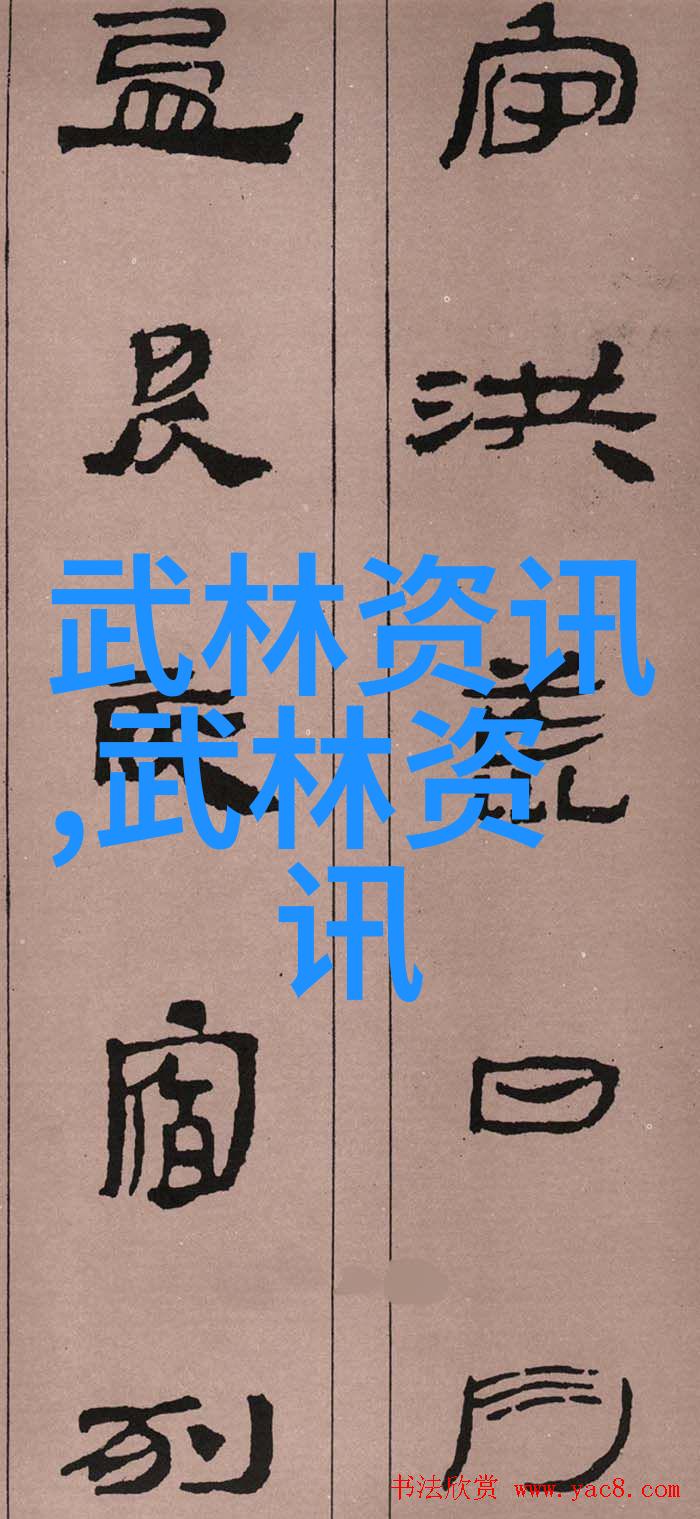 宙洪荒日月
盈昃辰宿列
武林资讯
,武林资
讯
书法欣赏 www.yac8.com